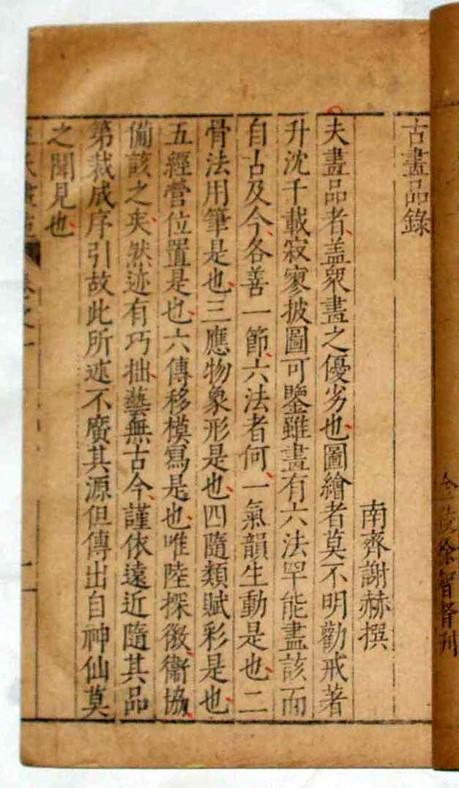 古畫品錄
南齊謝赫撰
夫畫品者蓋衆畫之優劣也圖繪者莫不明勸戒著
升沈千載寂寥披圖可鑒雖畫有六法罕能盡該而
自古及今各善一節六法者何一氣韻生動是也二
骨法用筆是也三應物象形是也四隨類賦彩是也
五經營位置是也六傳移模寫是也唯陸探微衞協
備該之矣然迹有巧拙藝無古今謹依遠近隨其品
第裁成序引故此所述不廣其源但傳出自神仙莫
之聞見也